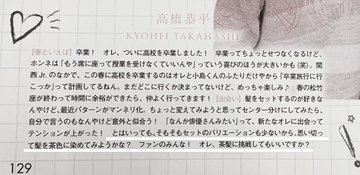 高橋恭平
KYOHEI TAKAHASHI
[春といえば] 卒業！ オレ、ついに高校を卒業しました！ 卒業ってちょっとせつなくなるけど、
ホンネは「もう席に座って授業を受けなくていいんや」っていう喜びのほうが大きいかも(笑)。関
西 Jr. のなかで、この春に高校を卒業するのはオレと小島くんのふたりだけやから「卒業旅行に行
こっか」って計画してるねん。まだどこに行くか決まってないけど、めっちゃ楽しみ♪ 春の松竹
座が終わって時間に余裕ができたら、仲よく行ってきます！ [出会い] 髪をセットするのが好きな
んやけど、最近パターンがマンネリ化。ちょっと変えてみようと思ってセンター分けにしてみたら、
自分で言うのもなんやけど意外と似合う！ 「なんか俳優さんみたい」って、新たなオレに出会って
テンションが上がった！ とはいっても、そもそもセットのバリエーションも少ないから、思い切っ
て髪を茶色に染めてみようかな？ ファンのみんな！ オレ、茶髪に挑戦してもいいですか？
129